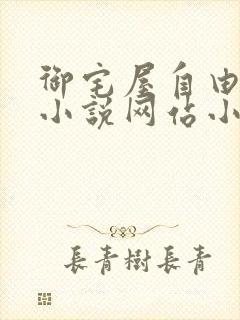 御宅屋自由
小说网佔小
長青樹長青